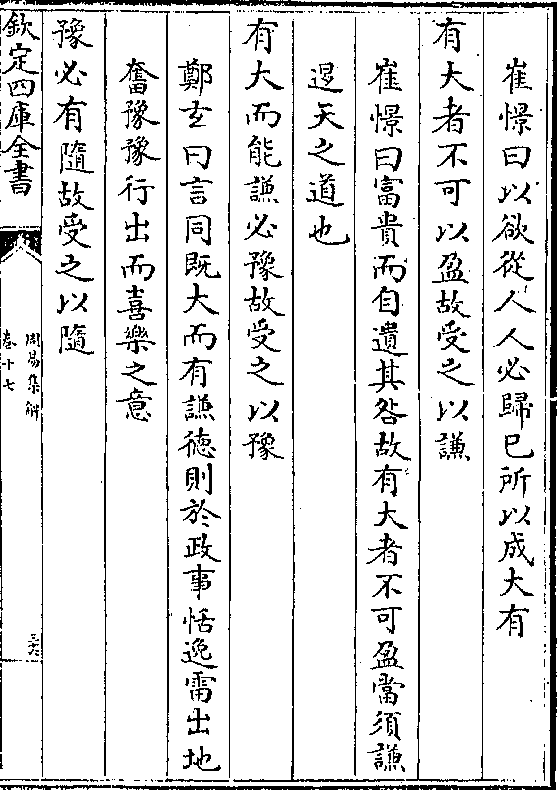 崔憬曰以欲從人人必歸已所以成大有
有大者不可以盈故受之以謙
崔憬曰富貴而自遺其咎故有大者不可盈當須謙
退天之道也
有大而能謙必豫故受之以豫
鄭玄曰言同既大而有謙德則於政事恬逸雷出地
奮豫豫行出而喜樂之意
豫必有隨故受之以隨
欽定四庫全書
周易集解
卷十七